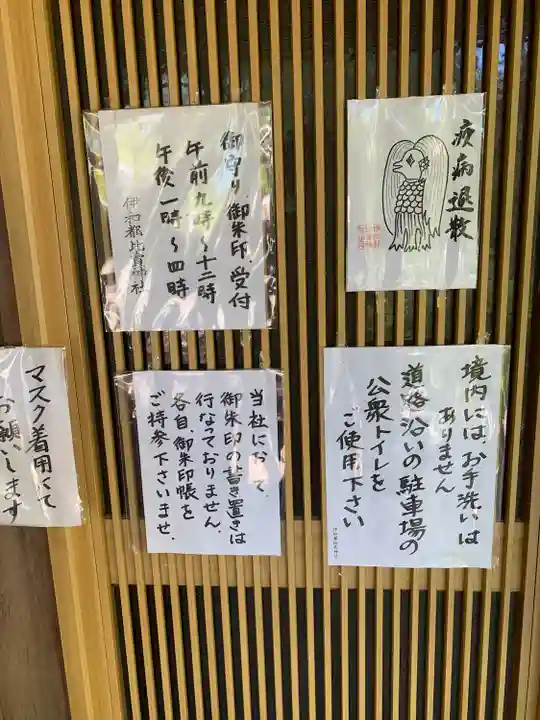 疾病退散
御守り、御朱印、受付
午前九時〜十二時
午後一時〜四時
伊和都比賣神社
境内には、お手洗いは
ありません
道路沿いの駐車場の
公衆トイレを
ご使用下さい
当社において、
御朱印の書き置きは
行なっておりません。
各自、御朱印帳を
ご持参下さいませ。
マスク着用にて
お願いします